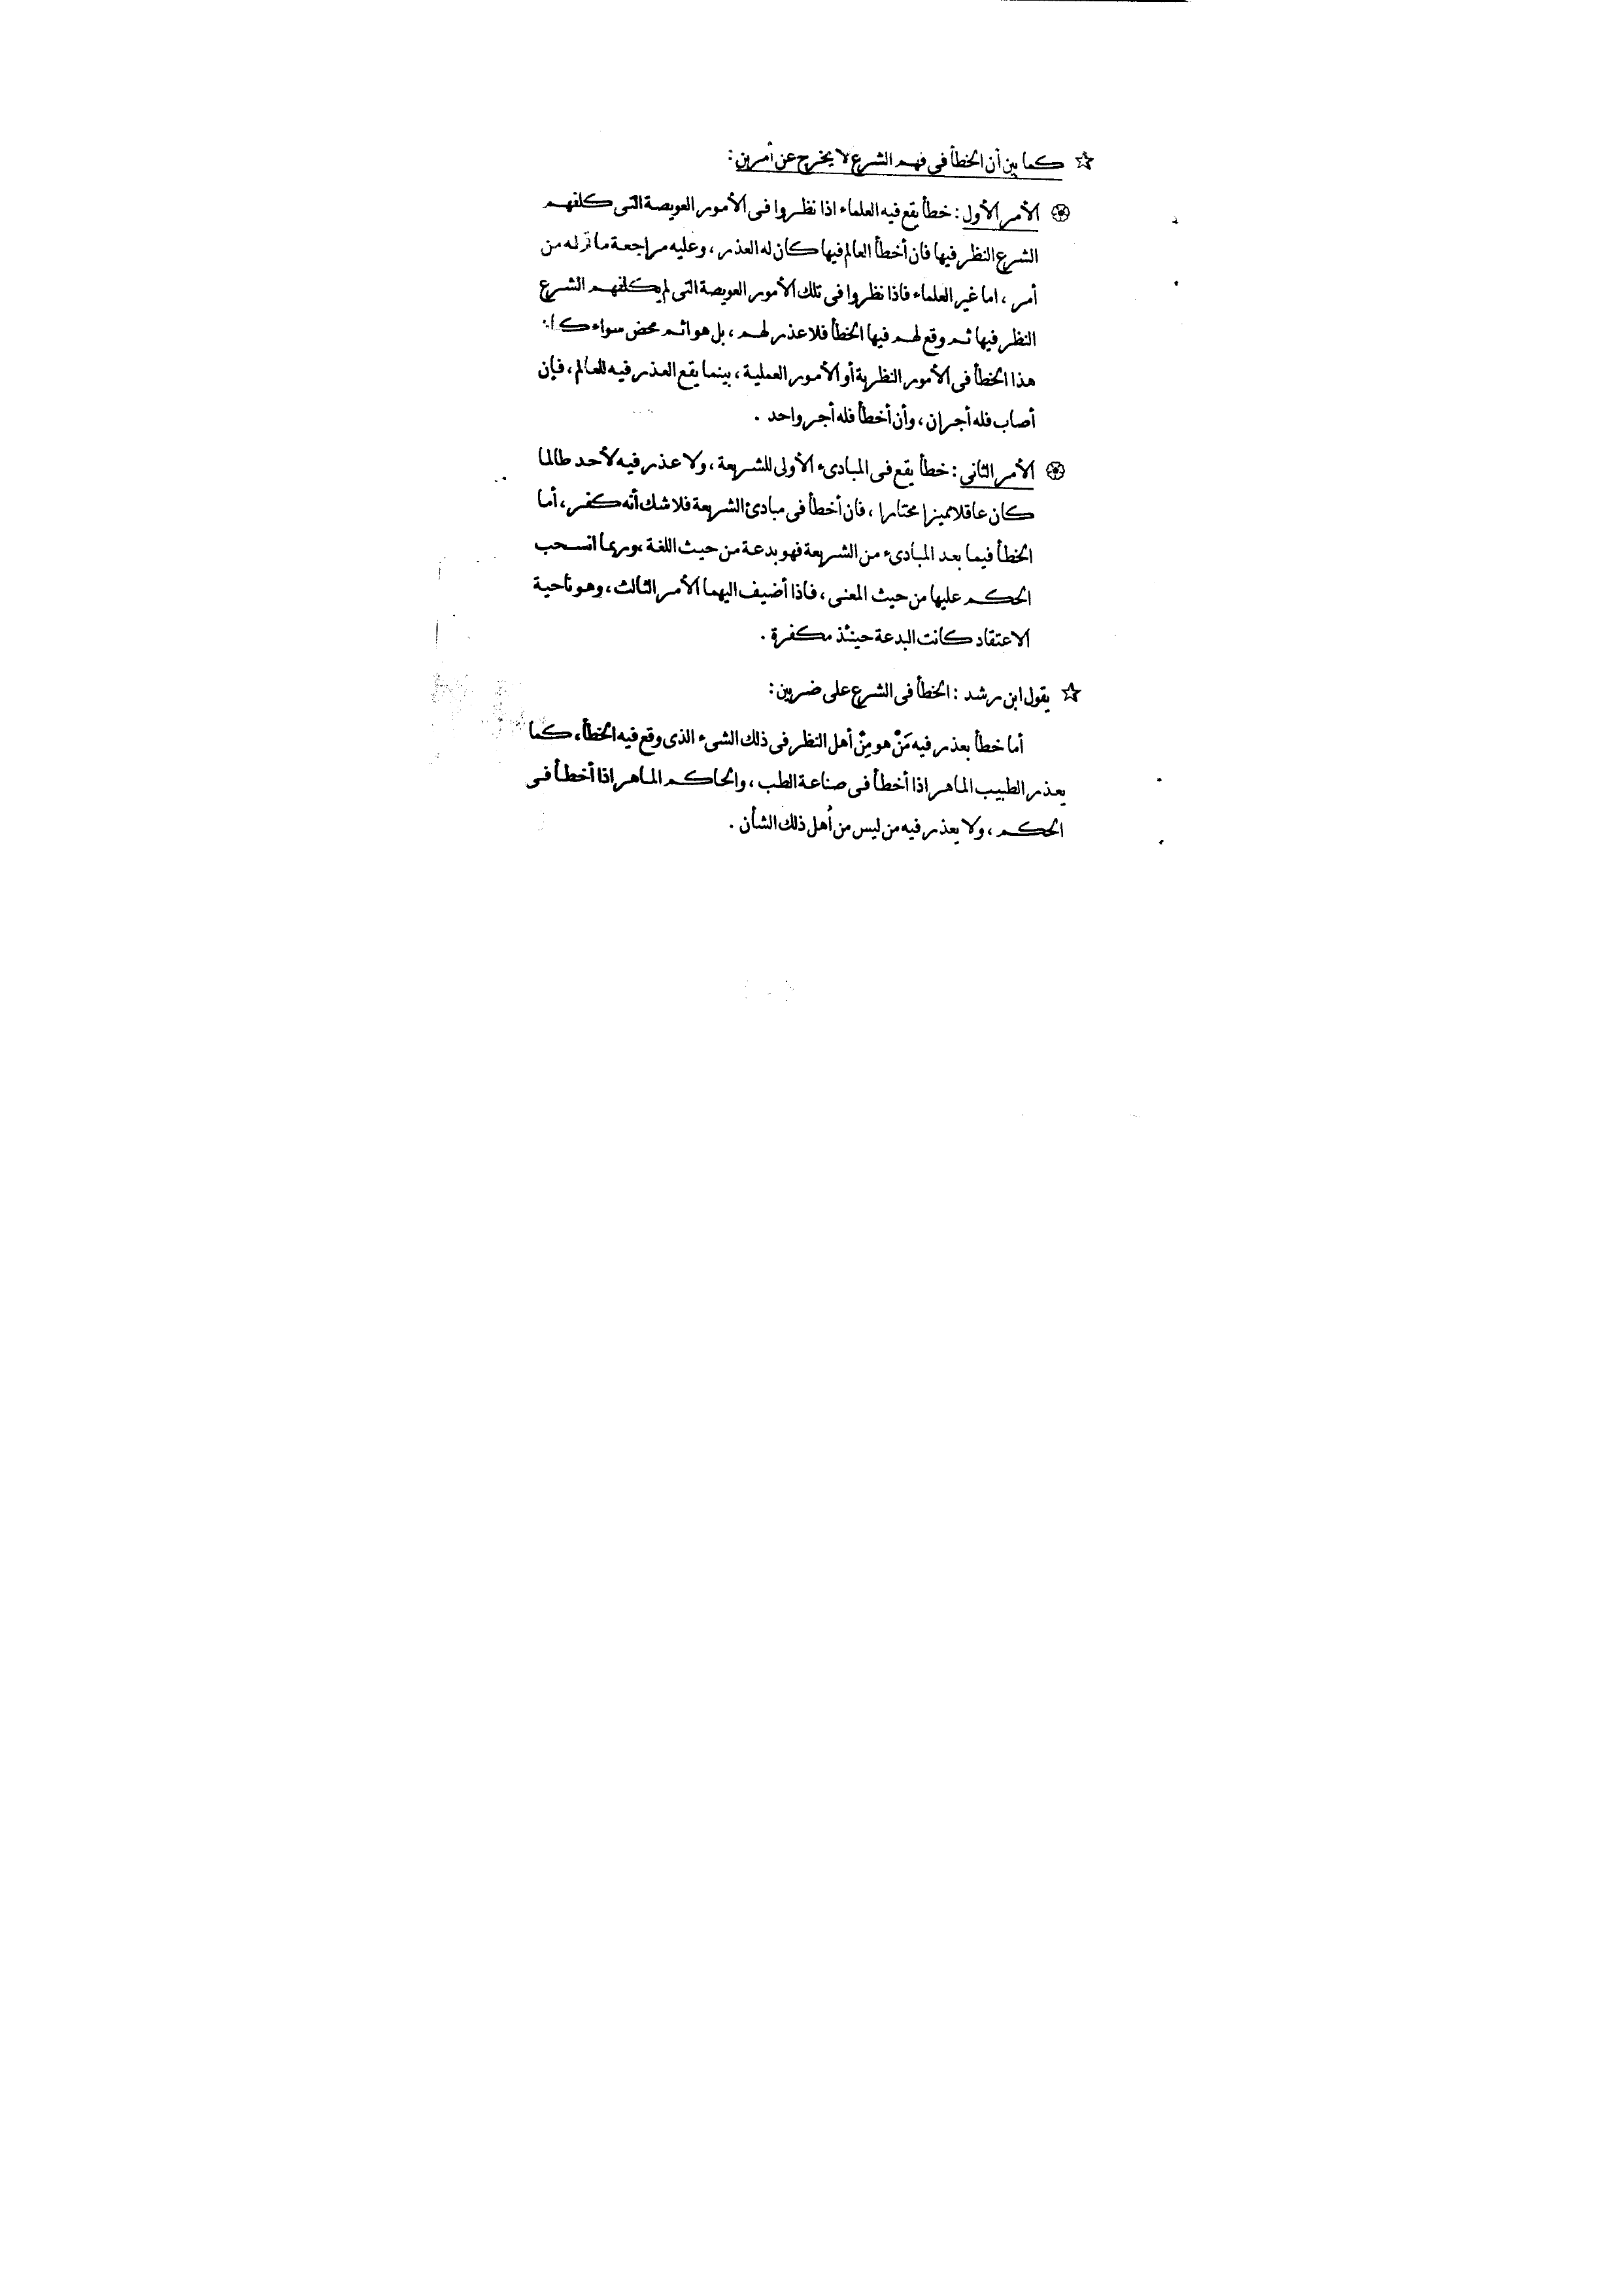 ☆ كما بين أن الخطأ فى فهم الشرع لا يخرج عن أمرين :
الأمر الأول : خطأ يقع فيه العلماء اذا نظروا فى الأمور العويصة التى كلفهم
الشرع النظر فيها فان أخطأ العالم فيها كان له العذر ، وعليه مراجعة ما نزله من
أمر ، اما غير العلماء فاذا نظروا فى تلك الأمور العويصة التى لم يكلفهم الشرع
النظر فيها ثم وقع لهم فيها الخطأ فلا عذر لهم ، بل هو اثم محض سواء كان
هذا الخطأ فى الأمور النظرية أو الأمور العملية ، بينما يقع العذر فيه للعالم ، فإن
أصاب فله أجران ، وأن أخطأ فله أجر واحد .
الأمر الثانى : خطأ يقع فى المبادىء الأولى للشريعة ، ولا عذر فيه لأحد طالما
كان عاقلا مميزا مختارا ، فان أخطأ فى مبادئ الشريعة فلا شك أنه كفر ، أما
الخطأ فيما بعد المبادىء من الشريعة فهو بدعة من حيث اللغة ، وربما انسحب
الحكم عليها من حيث المعنى ، فاذا أضيف اليهما الأمر الثالث ، وهو ناحية
الاعتقاد كانت البدعة حينئذ مكفرة .
☆ يقول ابن رشد : الخطأ فى الشرع على ضربين :
أما خطأ يعذر فيه مَنْ هو مِنْ أهل النظر فى ذلك الشىء الذى وقع فيه الخطأ ، كما
يعذر الطبيب الماهر اذا أخطأ فى صناعة الطب ، والحاكم الماهر اذا أخطأ فى
الحكم ، ولا يعذر فيه من ليس من أهل ذلك الشأن .